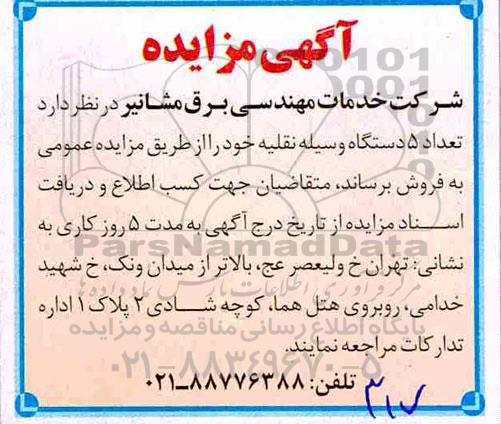 آگهی مزایده
شرکت خدمات مهندسی برق مشانیر در نظر دارد
تعداد ۵ دستگاه وسیله نقلیه خود را از طریق مزایده عمومی
به فروش برساند، متقاضیان جهت کسب اطلاع و دریافت
اسناد مزایده از تاریخ درج آگهی به مدت ۵ روز کاری به
ParsNamadData
نشانی: تهران خ ولیعصر عج، بالاتر از میدان ونک، خ شهید
مرکز فرآوری اطلاعات پارس نماد داده ها
خدامی، روبروی هتل هما، کوچه شادی ۲ پلاک ۱ اداره
پایگاه اطلاع رسانی مناقصه و مزایده
تدارکات مراجعه نمایند.
۰۲۱-۸۸۳۴۹۶۷۰-۵
تلفن: ۸۸۷۷۶۳۸۸-۰۲۱
۳۱۷